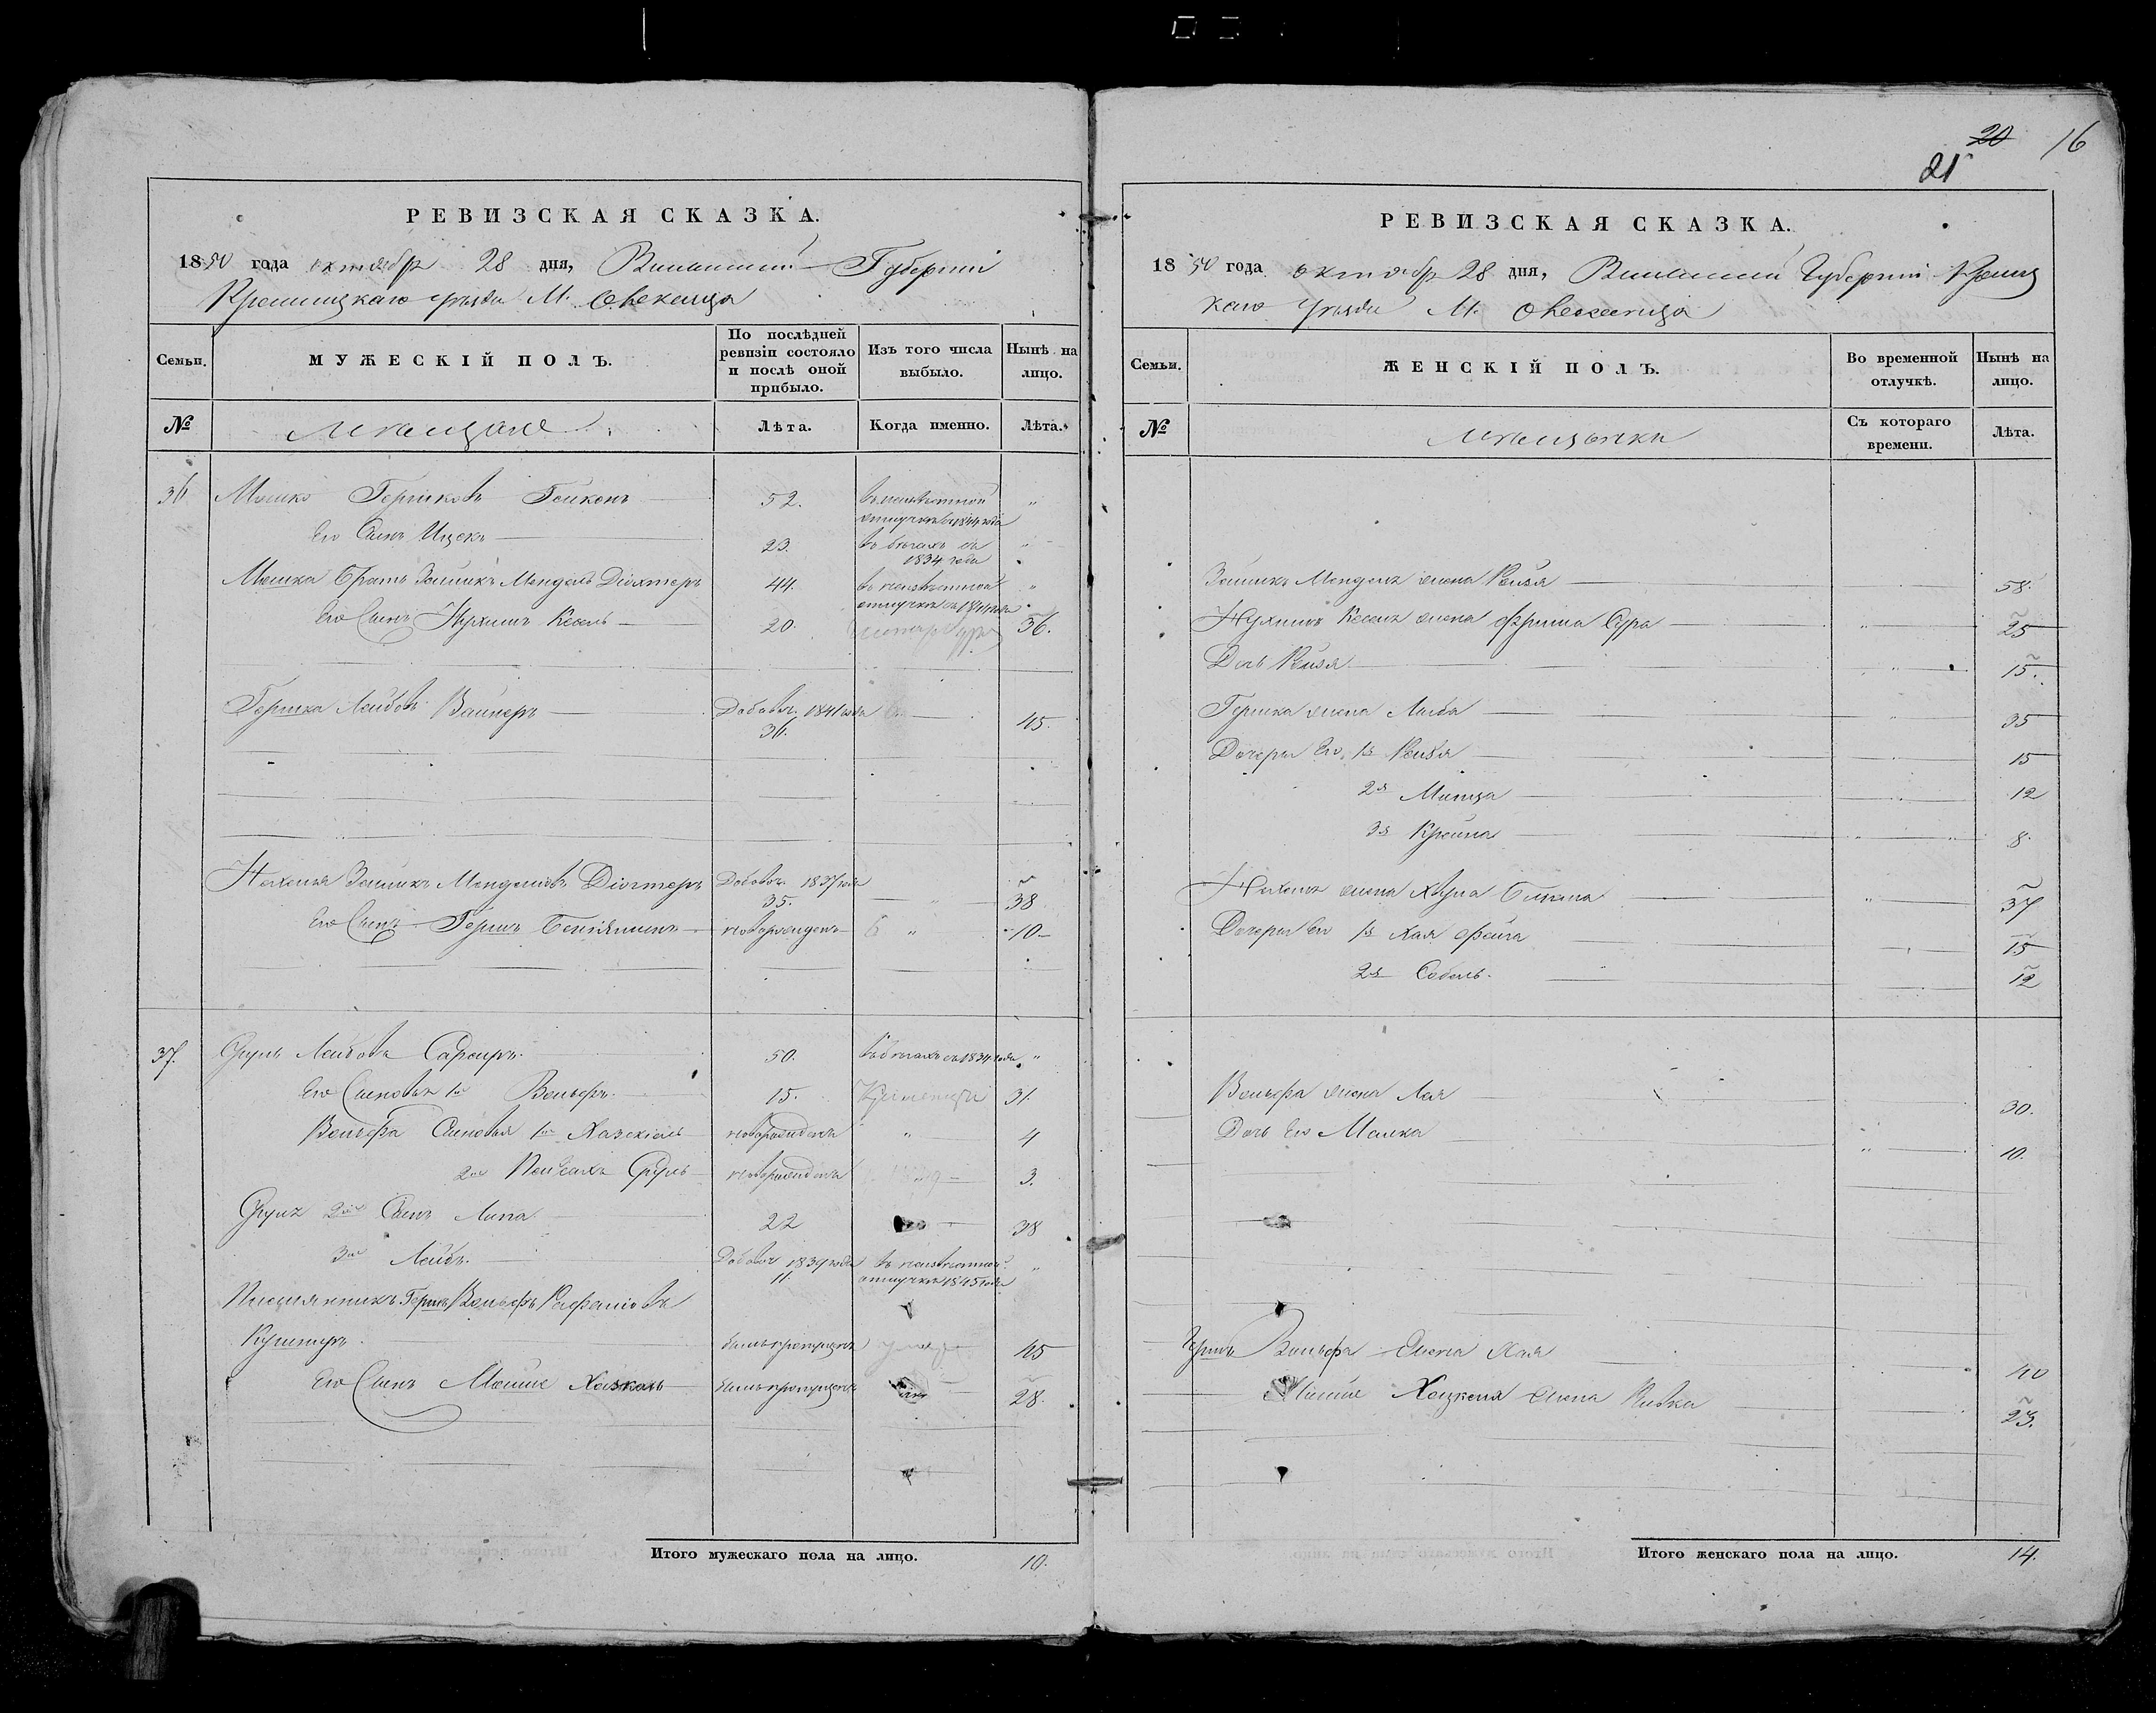 20 16
21
РЕВИЗСКАЯ СКАЗКА.
1850 года октябр 28 дня, Волынской Губерніи
Кременецкаго уѣзда М. Олексинца
Семьи.
МУЖЕСКІЙ ПОЛЪ.
По послѣдней ревизіи состояло и послѣ оной прибыло.
Изъ того числа выбыло.
Нынѣ на лицо.
№
Мѣщане
Лѣта.
Когда именно.
Лѣта.
36 Мошко Гершковъ 52. въ неизвѣстной отлучкѣ съ 1844 года "
Его Сынъ Ицекъ 23. въ бѣгахъ съ 1834 года "
Мошка братъ Зейликъ Мендель Діохтеръ 44. въ неизвѣстной отлучкѣ съ "
Его Сынъ Нухимъ Кесель 20. 36.
Гершка Лейбовъ Вайнеръ Добавоч. 1841 года 36. 45.
Зейликъ Менделевъ Діохтеръ Добавоч. 1837 года 35. " 38
Его Сынъ Гершъ Беніяминъ новорожденъ " 10
37. Сруль Лейбовъ 50. въ бѣгахъ съ 1834 года "
Его Сыновья 1й Вольфъ 15. 31.
Вольфа Сыновья 1й Хаскіель новорожденъ " 4
2й Пейсахъ Сруль новорожденъ 3.
Сруля 2й Сынъ Липа 22 38
3й Лейбъ Добавоч 1839 года 11. въ неизвѣстной отлучкѣ 1845 года "
Племянникъ Гершъ Вольфъ Рафаиловъ
Кушниръ былъ пропущенъ 45
Его Сынъ Мошке Хацкель былъ пропущенъ 28.
Итого мужескаго пола на лицо. 10.
РЕВИЗСКАЯ СКАЗКА.
1850 года октябр 28 дня, Волынской Губерніи Кременец
каго уѣзда М. Олексинца
Семьи.
ЖЕНСКІЙ ПОЛЪ.
Во временной отлучкѣ.
Нынѣ на лицо.
№
Мѣщанки
Съ котораго времени.
Лѣта.
Зейликъ Менделя жена Рейзя 58.
Нухима Кеселя жена Фрима Сура " 25
Дочь Рейзя " 15.
Гершка жена Либа " 35
Дочери Его 1я Рейзя 15
2я Минца 12
3я Крейна " " 8.
жена Хума " 37
Дочери Его 1я Хая Фейга 15
2я Собель. 12
Вольфа жена Лея 30.
Дочь Его Малка " 10.
Гершъ Вольфа Жена Хая 40
Мошке Хацкеля Жена Ривка 23.
Итого женскаго пола на лицо. 14.